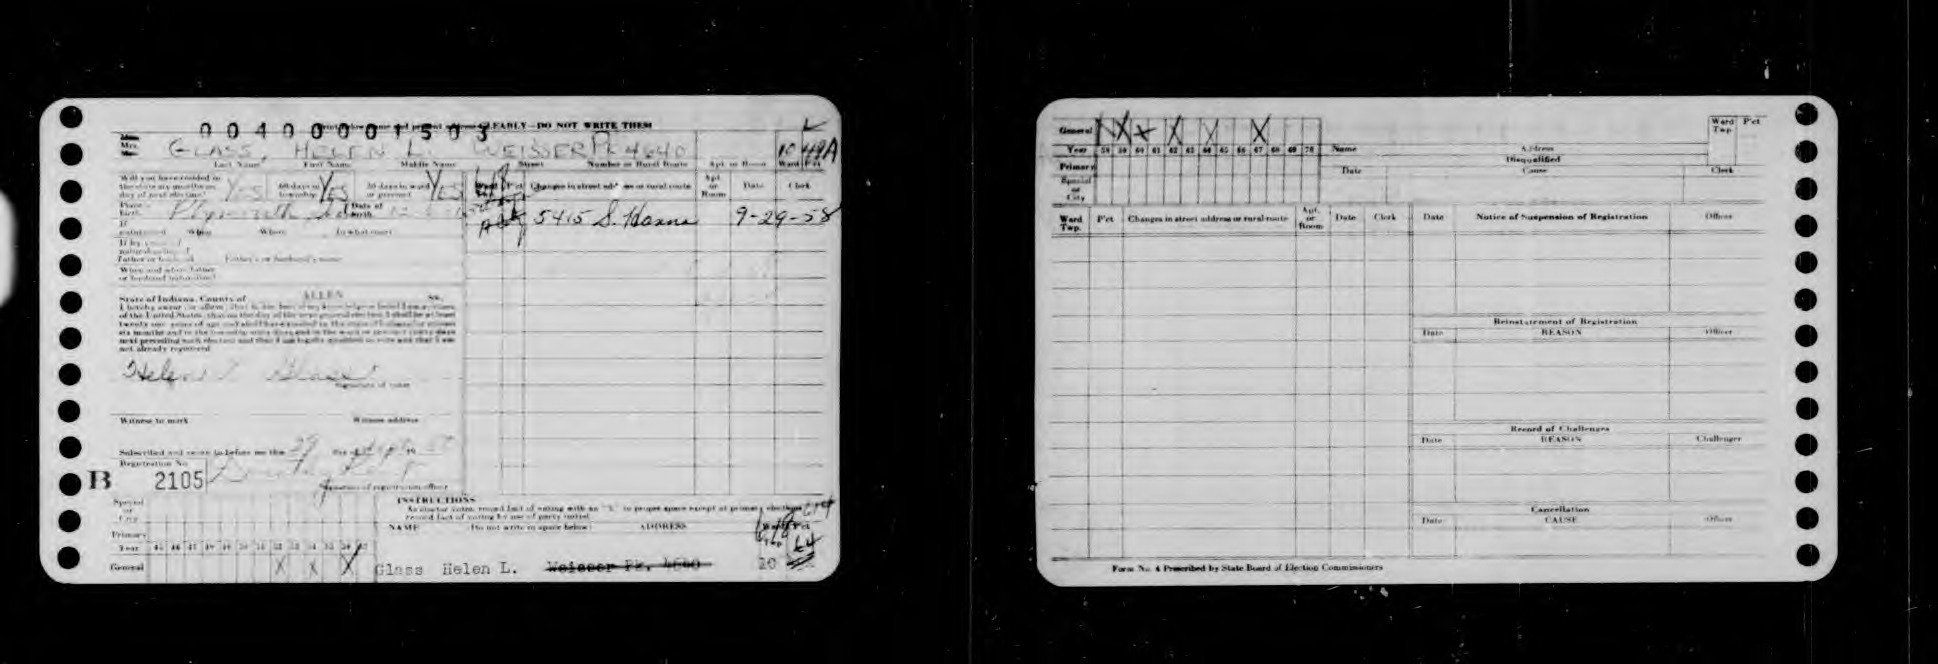 CLEARLY—DO NOT WRITE THEM
00400001503
GLASS, HELEN L. WEISSER PK 4640 10 49A
Last Name First Name Middle Name Street Number or Rural Route Apt. or Room Ward Pct
Will you have resided in
the state six months on
day of next election? Yes 60 days in township Yes 30 days in ward or precinct Yes
Ward Pct Changes in street address or rural route Apt. or Room Date Clerk
Place Birth Plymouth Date of birth
5415 S. Hanna 9-29-58
If naturalized When Where In what court
Father or husband Father's or husband's name
When and where father
or husband naturalized?
State of Indiana, County of ALLEN SS.
I hereby swear or affirm, that to the best of my knowledge and belief I am a citizen
of the United States, that on the day of the next general election I shall be at least
twenty-one years of age and shall have resided in the state of Indiana for at least
six months and in the township sixty days and in the ward or precinct thirty days
next preceding such election and that I am legally qualified to vote and that I am
not already registered
Helen L. Glass
Signature of voter
Witness to mark Witness address
Subscribed and sworn to before me this 29 Day of Sept 19
Registration No.
B 2105
Signature of registration officer
INSTRUCTIONS
As elector votes, record fact of voting with an "X" in proper space except at primary elections
record fact of voting by use of party voted
Special or City
NAME (Do not write in space below) ADDRESS Ward Pct
Primary
Year 45 46 47 48 49 50 51 52 53 54 55 56 57
General X X X
Glass Helen L. Weisser Pk. 4640 10
General X X X X X X
Year 58 59 60 61 62 63 64 65 66 67 68 69 70
Name Address
Ward Twp. P'ct
Disqualified
Primary Date Cause Clerk
Special or City
Ward Twp. P'ct Changes in street address or rural route Apt. or Room Date Clerk
Date Notice of Suspension of Registration Officer
Reinstatement of Registration
Date REASON Officer
Record of Challenges
Date REASON Challenger
Cancellation
Date CAUSE Officer
Form No. 4 Prescribed by State Board of Election Commissioners